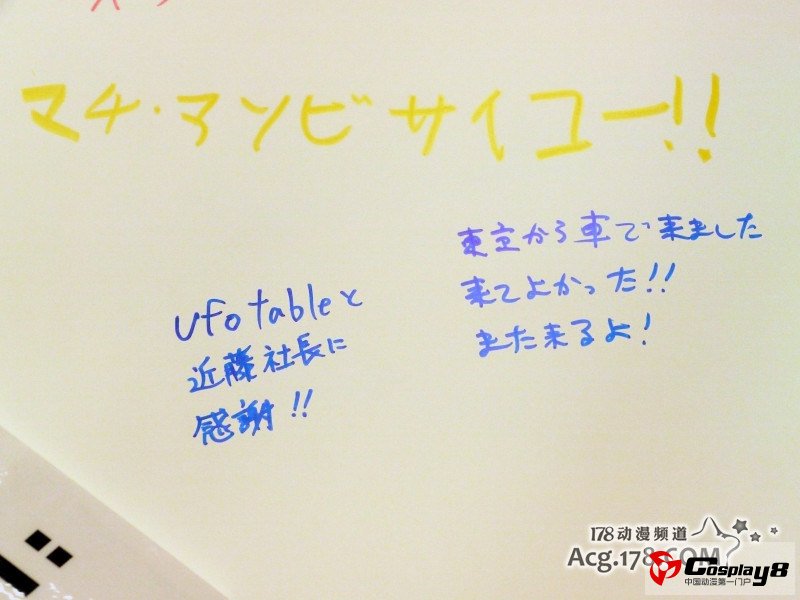 マチ・アソビ サイコー!!
東京から車で来ました
来てよかった!!
また来るよ!
ufotableと
近藤社長に
感謝!!
178动漫频道
Acg.178.COM
Cosplay8
中国动漫第一门户